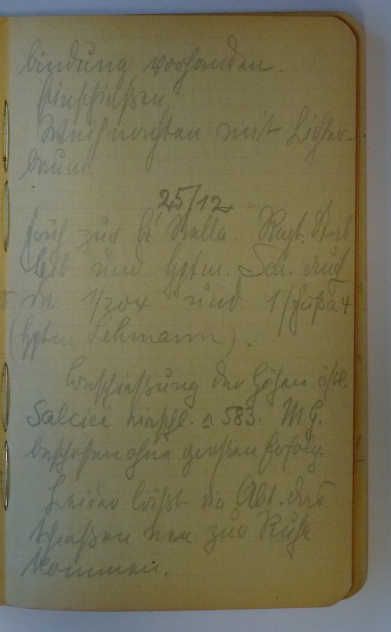 bindung vorhanden.
Einschießen
Weihnachten mit Lichter-
baum.
25/12
früh zur B Stelle. Regt. Stab
und Hptm. Sch. auf
1/204 und 1/Fußa 4
(Hptm Lehmann).
Beschießung der Höhen östl.
Salcici einschl. 583. M.G.
beschossen ohne großen Erfolg.
Leider läßt die Abt. das
Schießen zur Ruhe
kommen.